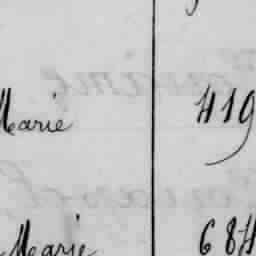 Marie 419
Marie 684